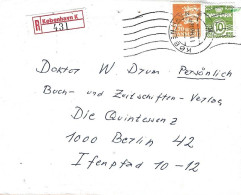 R København K
431
10
Doktor W. Drum - Persönlich
Buch- und Zeitschriften-Verlag
Die Quintessenz
1000 Berlin 42
Ifenpfad 10-12